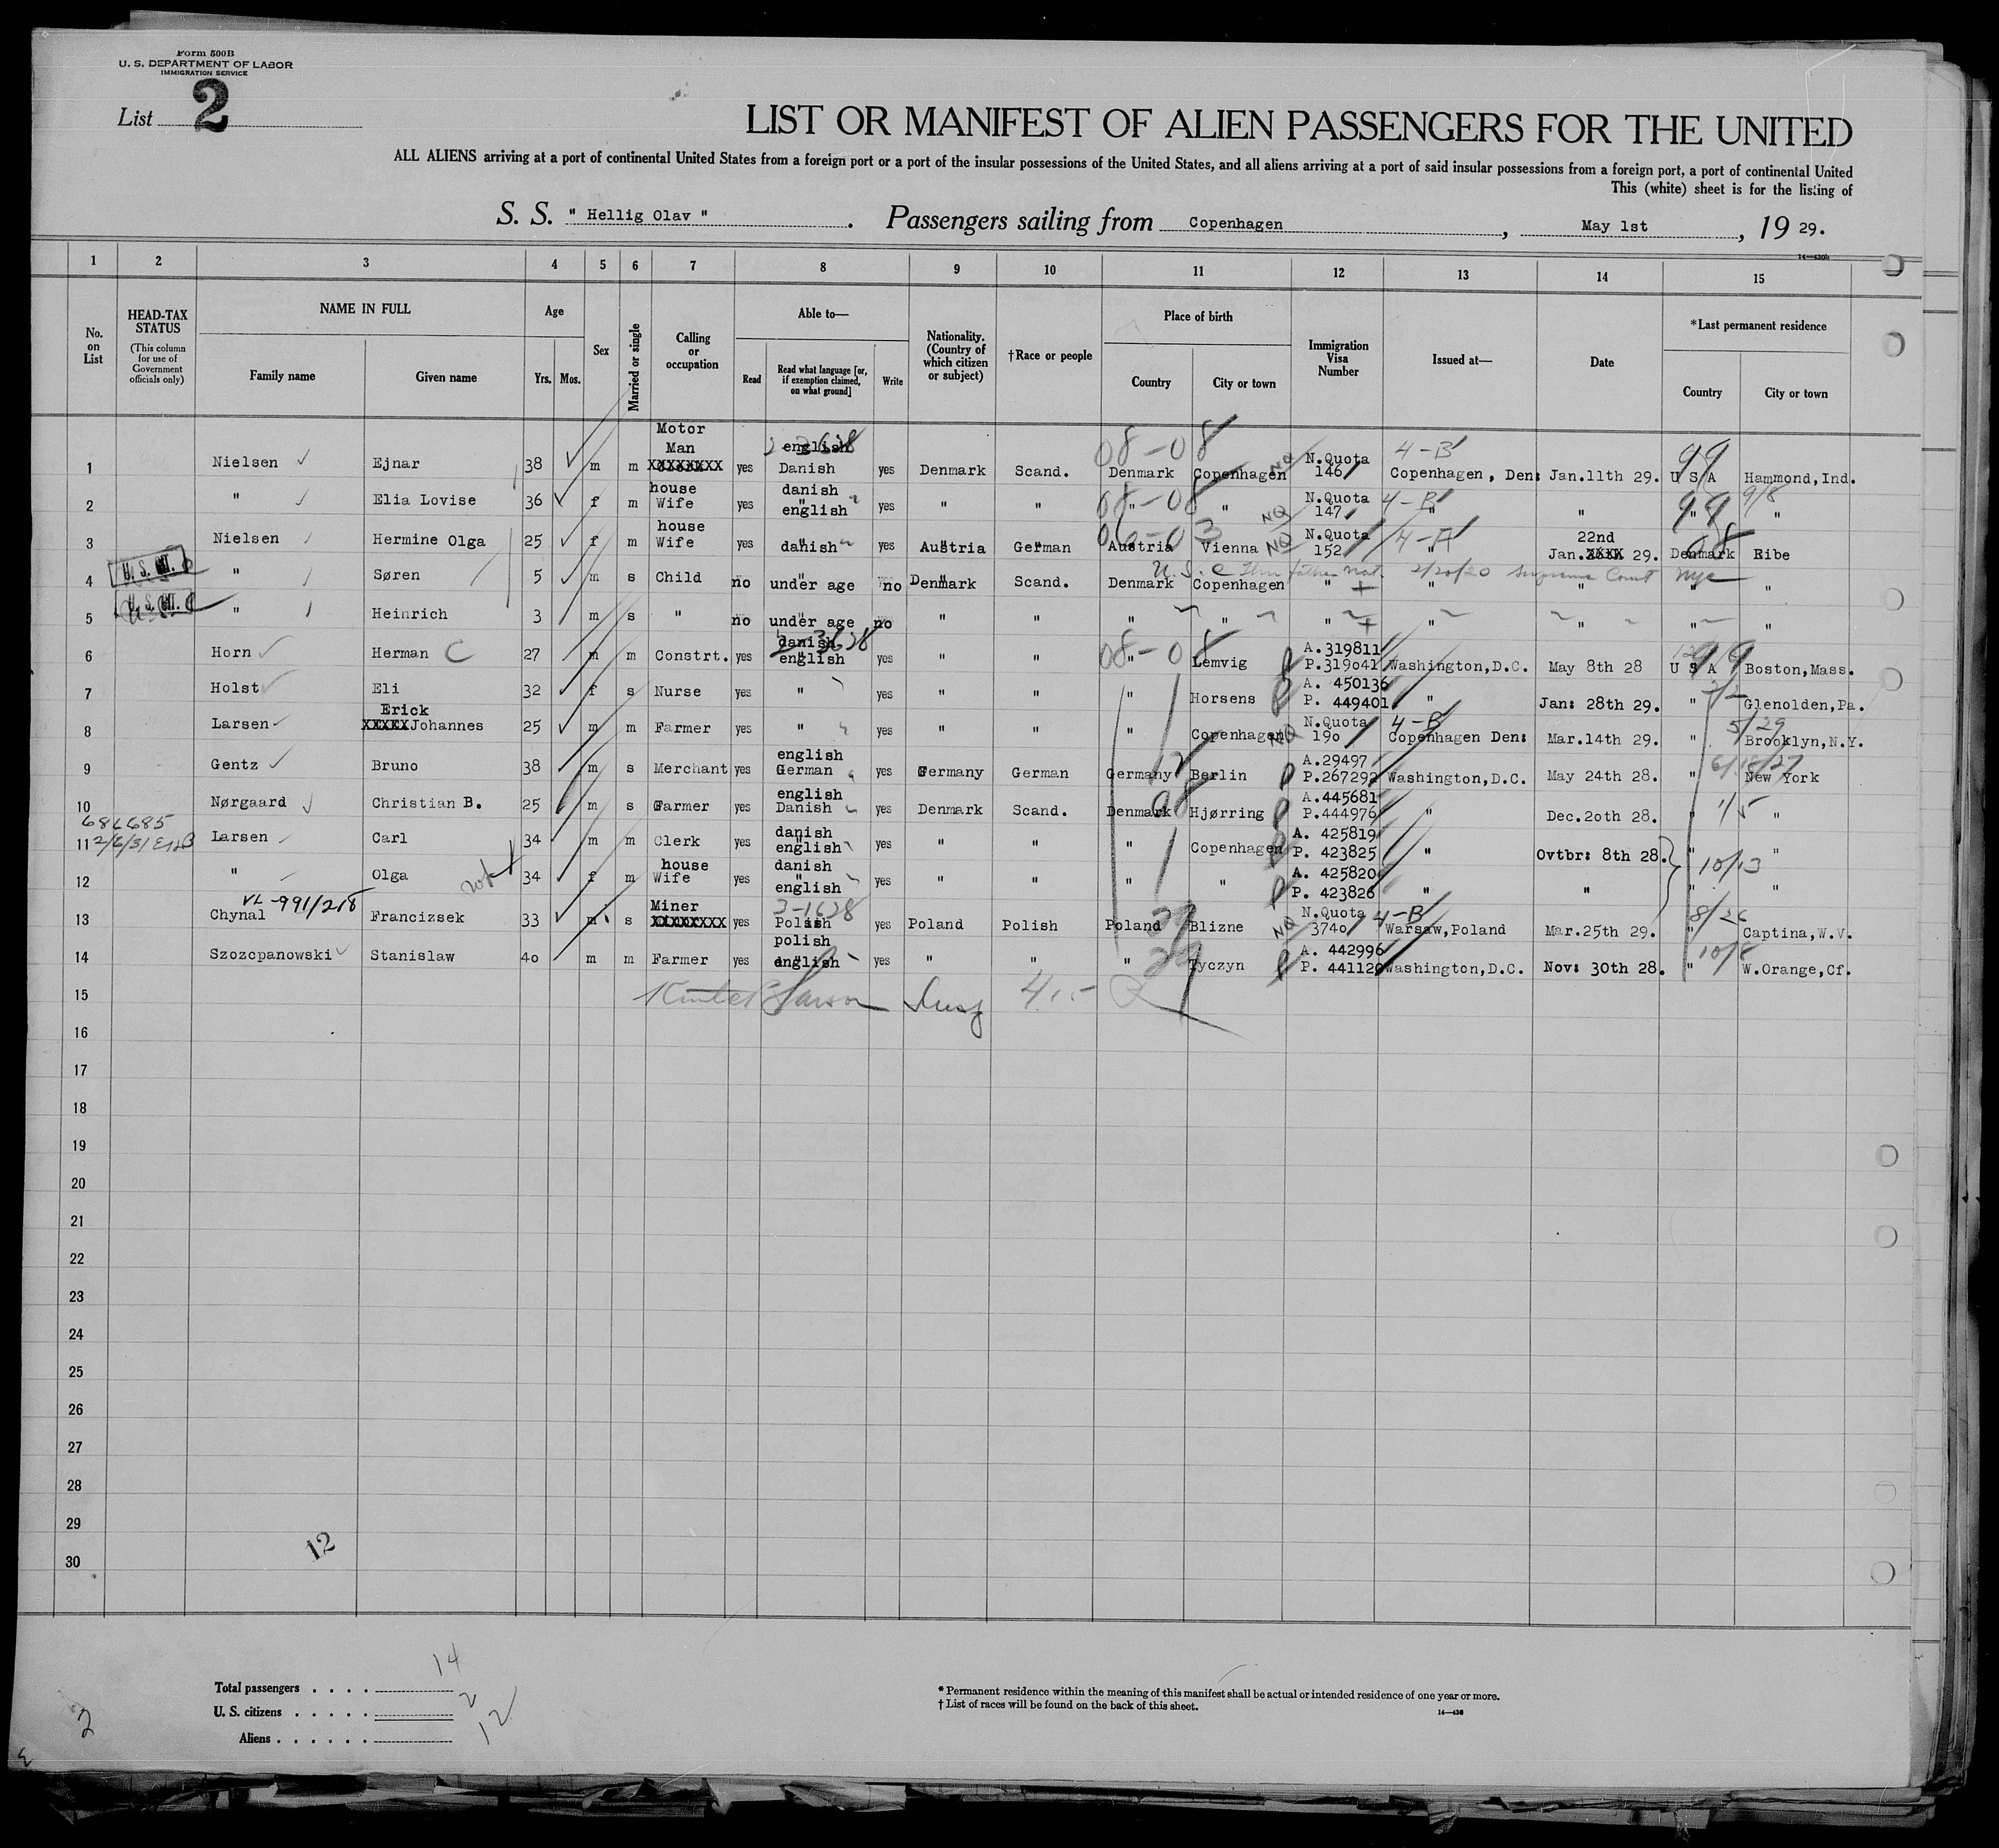 Form 500B
U. S. DEPARTMENT OF LABOR
IMMIGRATION SERVICE
List 2
LIST OR MANIFEST OF ALIEN PASSENGERS FOR THE UNITED
ALL ALIENS arriving at a port of continental United States from a foreign port or a port of the insular possessions of the United States, and all aliens arriving at a port of said insular possessions from a foreign port, a port of continental United
This (white) sheet is for the listing of
S. S. " Hellig Olav ". Passengers sailing from Copenhagen, May 1st, 19 29.
14—430b
1 2 3 4 5 6 7 8 9 10 11 12 13 14 15
No. on List
HEAD-TAX STATUS
(This column for use of Government officials only)
NAME IN FULL
Family name Given name
Age
Yrs. Mos.
Sex
Married or single
Calling or occupation
Able to—
Read
Read what language [or, if exemption claimed, on what ground]
Write
Nationality. (Country of which citizen or subject)
†Race or people
Place of birth
Country City or town
Immigration Visa Number
Issued at—
Date
*Last permanent residence
Country City or town
1 Nielsen Ejnar 38 m m Motor Man XXXXXXXX yes english Danish yes Denmark Scand. 08-08 Denmark Copenhagen NQ N.Quota 146 4-B Copenhagen, Den: Jan.11th 29. 99 U S A Hammond,Ind.
2 " Elia Lovise 36 f m house Wife yes danish " english yes " " 08-08 " " NQ N.Quota 147 4-B " " 99 " 9/8 "
3 Nielsen Hermine Olga 25 f m house Wife yes danish yes Austria German 06-03 Austria Vienna NQ N.Quota 152 4-A " 22nd Jan.XXXX 29. 08 Denmark Ribe
U. S. C Thru father nat. 2/20/20 Supreme Court NYC
4 U. S. CIT. " Søren 5 m s Child no under age no Denmark Scand. Denmark Copenhagen " " " " "
5 U. S. CIT. " Heinrich 3 m s " no under age no " " " " " " " " "
6 Horn Herman C 27 m m Constrt. yes danish english yes " " 08-08 " Lemvig A.319811 P.319041 Washington,D.C. May 8th 28 99 U S A Boston,Mass.
7 Holst Eli 32 f s Nurse yes " yes " " " Horsens A. 450136 P. 449401 " Jan: 28th 29. " Glenolden,Pa.
8 Larsen Erick XXXXX Johannes 25 m m Farmer yes " yes " " " Copenhagen NQ N.Quota 190 4-B Copenhagen Den: Mar.14th 29. " 5/29 Brooklyn,N.Y.
9 Gentz Bruno 38 m s Merchant yes english German yes Germany German Germany Berlin A.29497 P.267292 Washington,D.C. May 24th 28. " 6/18/27 New York
10 Nørgaard Christian B. 25 m s Farmer yes english Danish yes Denmark Scand. Denmark Hjørring A.445681 P.444976 " Dec.20th 28. " 1/5 "
686685
11 2/6/31 Larsen Carl 34 m m Clerk yes danish english yes " " " Copenhagen A. 425819 P. 423825 " Ovtbr: 8th 28. " "
10/13
12 " Olga 34 f m house Wife yes danish " english yes " " " " A. 425820 P. 423826 " " " "
VL-991/218
13 Chynal Francizsek 33 m s Miner XXXXXXXX yes 3-1628 Polish yes Poland Polish Poland Blizne NQ N.Quota 3740 4-B Warsaw,Poland Mar.25th 29. " 8/26 Captina,W.V.
14 Szozcpanowski Stanislaw 40 m m Farmer yes polish english yes " " " Tyczyn A. 442996 P. 441120 Washington,D.C. Nov: 30th 28. " 10/8 W.Orange,Cf.
15
16
17
18
19
20
21
22
23
24
25
26
27
28
29
30
12
Total passengers . . . . 14
U. S. citizens . . . . . 2
Aliens . . . . . . 12
2
* Permanent residence within the meaning of this manifest shall be actual or intended residence of one year or more.
† List of races will be found on the back of this sheet.
14—430